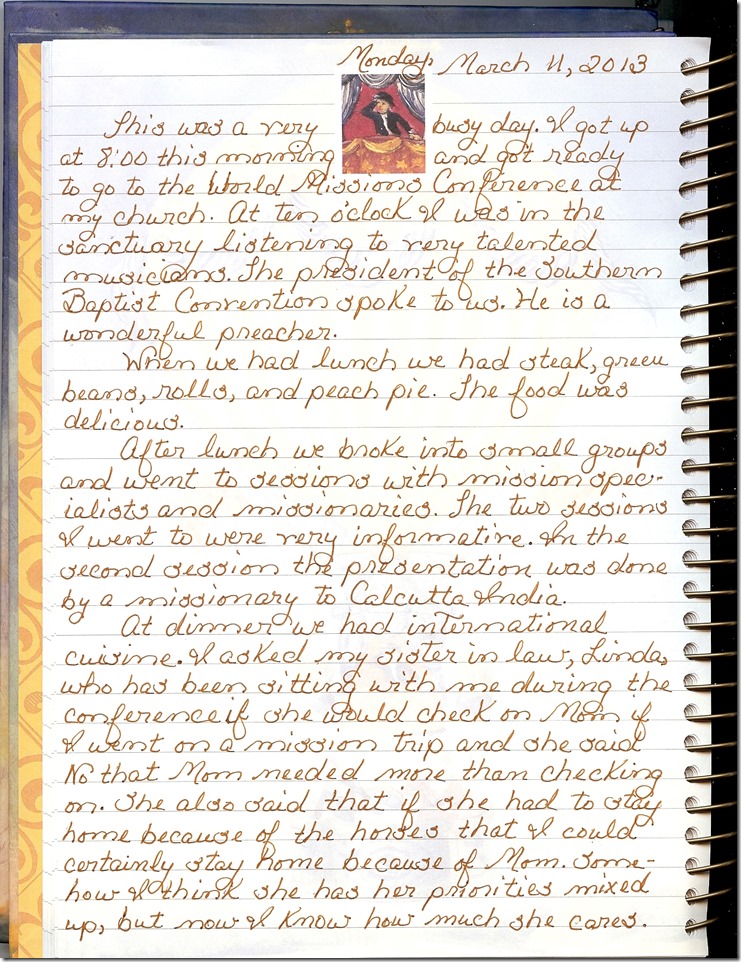 Monday, March 11, 2013
This was a very busy day. I got up
at 8:00 this morning and got ready
to go to the World Missions Conference at
my church. At ten o'clock I was in the
sanctuary listening to very talented
musicians. The president of the Southern
Baptist Convention spoke to us. He is a
wonderful preacher.
When we had lunch we had steak, green
beans, rolls, and peach pie. The food was
delicious.
After lunch we broke into small groups
and went to sessions with mission spec-
ialists and missionaries. The two sessions
I went to were very informative. In the
second session the presentation was done
by a missionary to Calcutta India.
At dinner we had international
cuisine. I asked my sister in law, Linda,
who has been sitting with me during the
conference if she would check on Mom if
I went on a mission trip and she said
No that Mom needed more than checking
on. She also said that if she had to stay
home because of the horses that I could
certainly stay home because of Mom. Some-
how I think she has her priorities mixed
up, but now I know how much she cares.